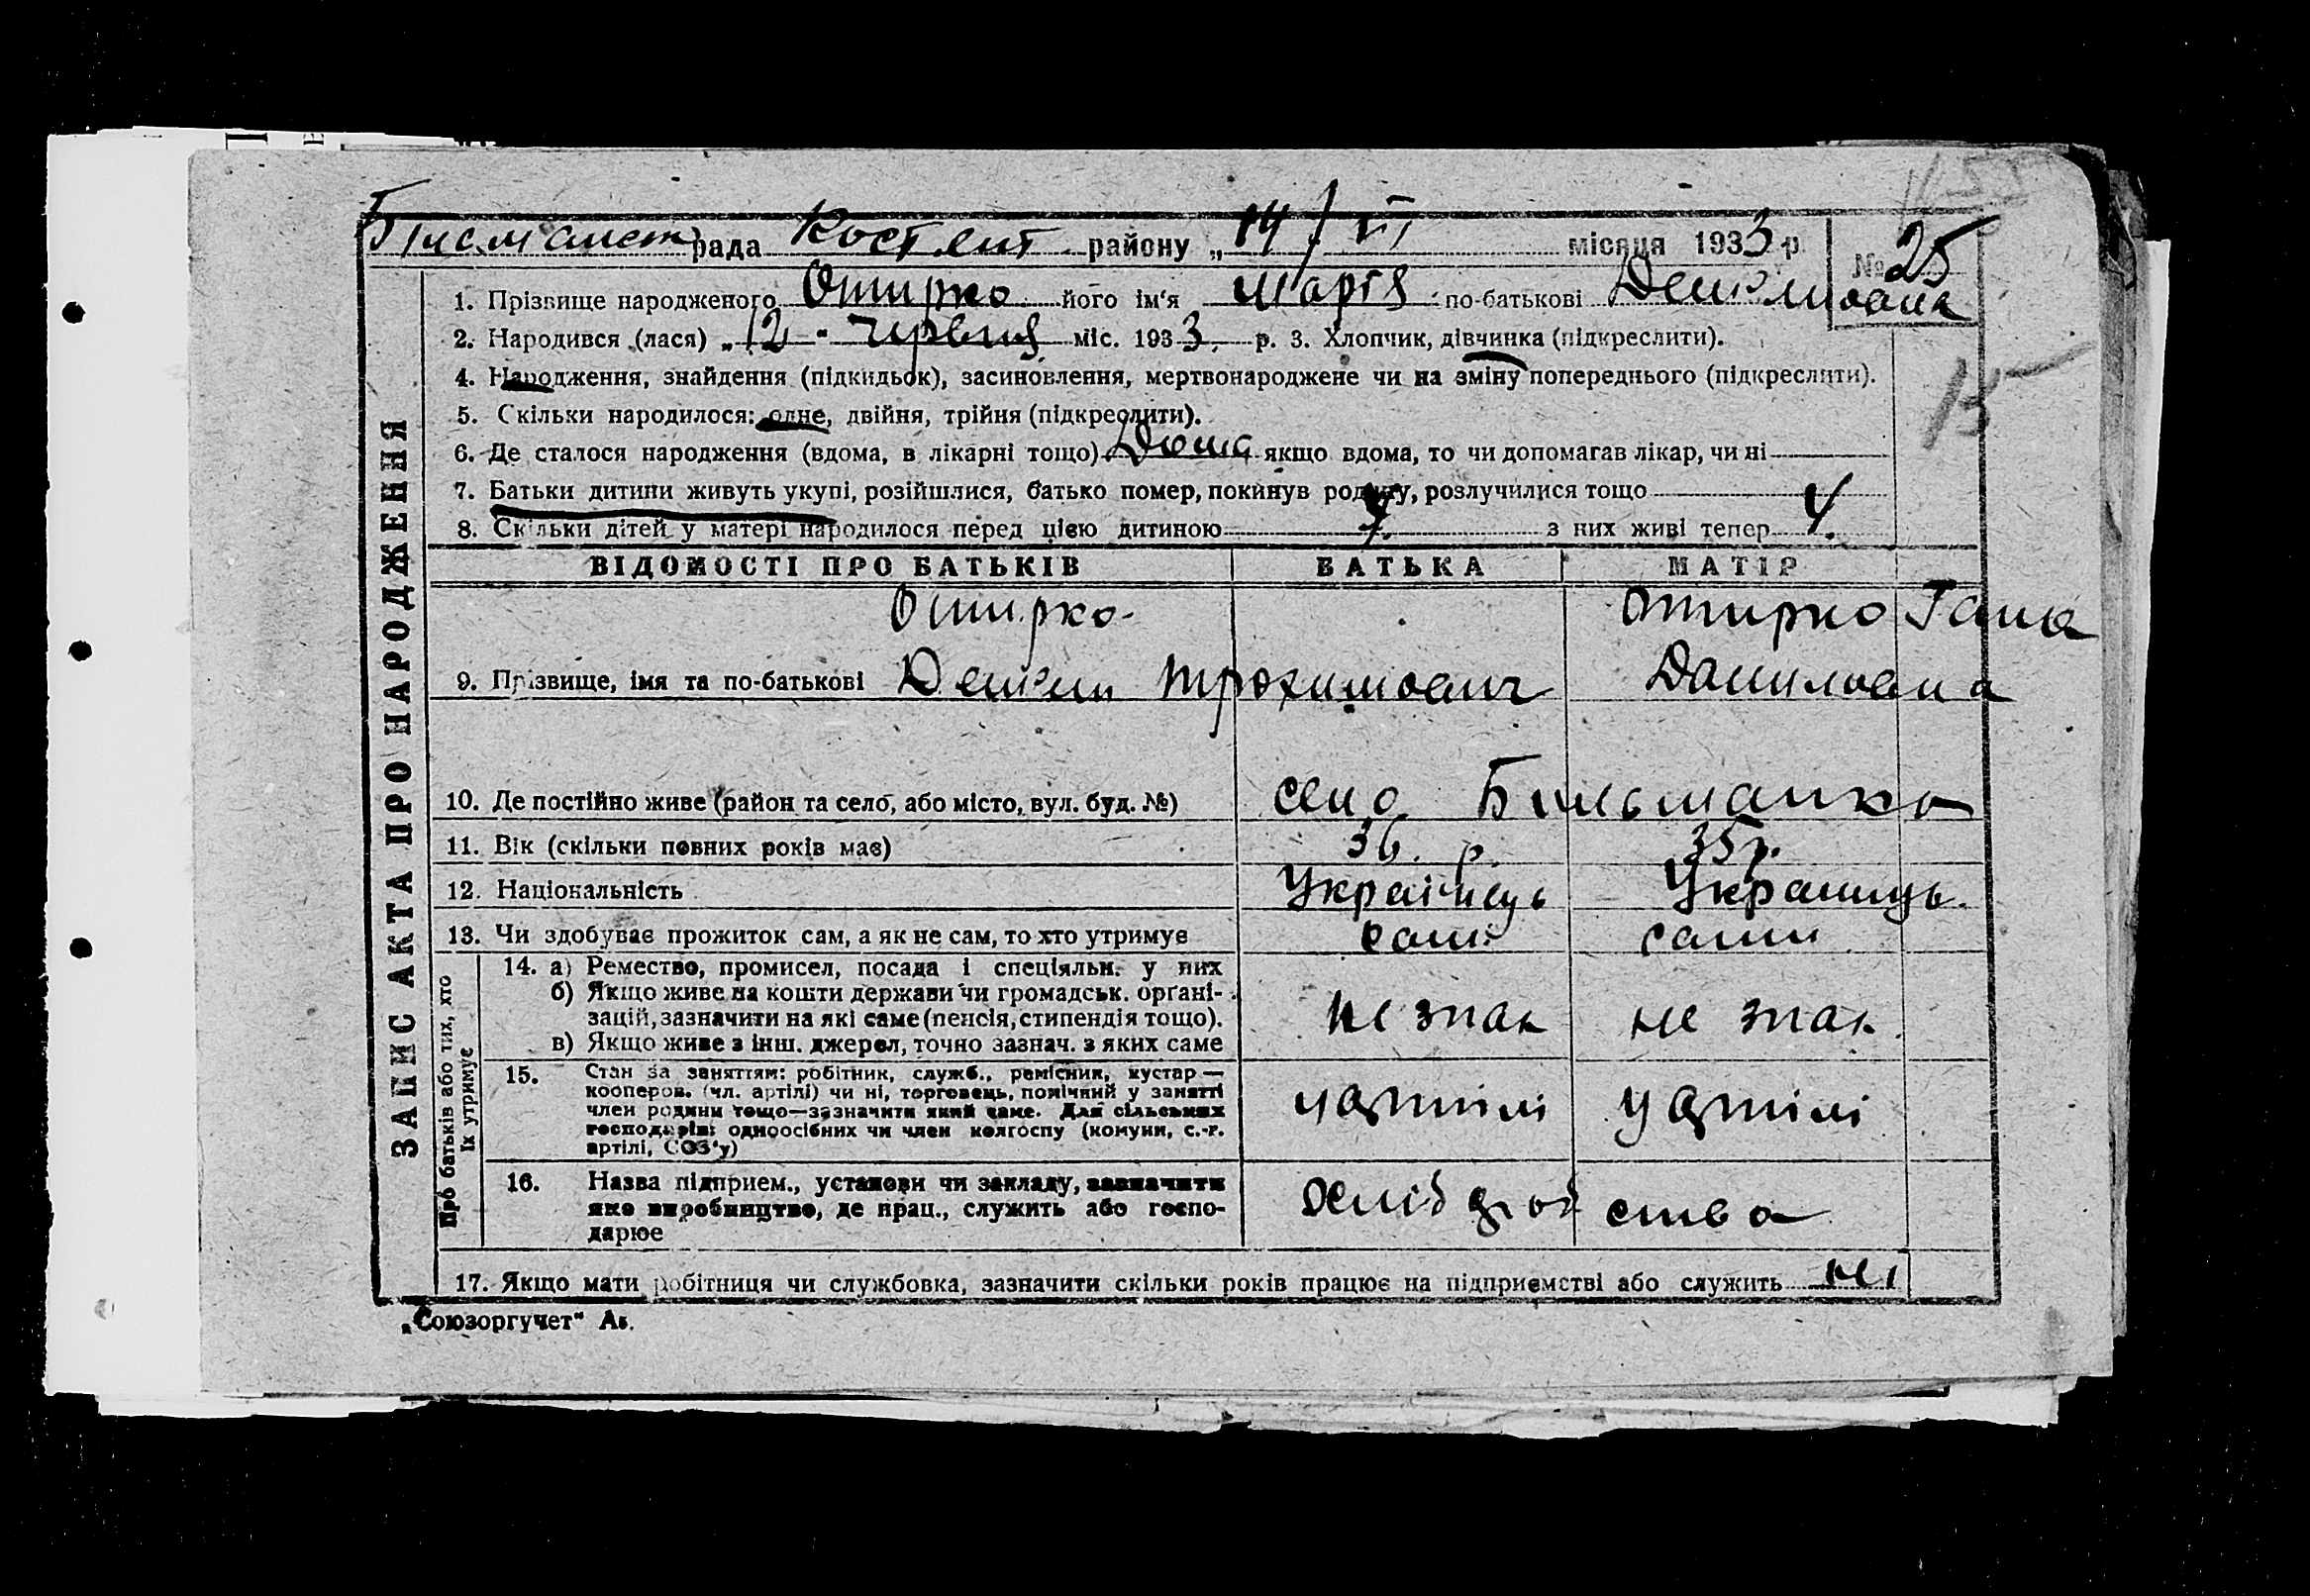 рада район у „14/VI місяця 1933 р. № 25
1. Прізвище народженого Отирко його ім'я Марія по-батькові
2. Народився (лася) „12" червня міс. 1933 р. 3. Хлопчик, дівчинка (підкреслити).
4. Народження, знайдення (підкидьок), засиновлення, мертвонароджене чи на зміну попереднього (підкреслити).
5. Скільки народилося: одне, двійня, трійня (підкреслити).
6. Де сталося народження (вдома, в лікарні тощо) Дома якщо вдома, то чи допомагав лікар, чи ні
7. Батьки дитини живуть укупі, розійшлися, батько помер, покинув родину, розлучилися тощо
8. Скільки дітей у матері народилося перед цією дитиною 7. з них живі тепер 4.
15
ЗАПИС АКТА ПРО НАРОДЖЕННЯ
ВІДОМОСТІ ПРО БАТЬКІВ БАТЬКА МАТІР
Отирко Отирко Гана
9. Прізвище, імя та по-батькові Трохимович Даниловна
10. Де постійно живе (район та село, або місто, вул. буд. №) село Бильманка
11. Вік (скільки повних років має) 36. р. 35 р.
12. Національність Українець Украинць.
13. Чи здобуває прожиток сам, а як не сам, то хто утримує сами сами
Про батьків або тих, хто їх утримує
14. а) Ремество, промисел, посада і спеціяльн. у них
б) Якщо живе на кошти держави чи громадськ. органі-
зацій, зазначити на які саме (пенсія, стипендія тощо). не знак не знак.
в) Якщо живе з інш. джерел, точно зазнач. з яких саме
15. Стан за заняттям: робітник, служб., ремісник, кустар—
кооперов. (чл. артілі) чи ні, торговець, помічний у занятті
член родини тощо—зазначити який саме. Для сільських
господарів: одноосібних чи член колгоспу (комуни, с.-г.
артілі, СОЗ'у) у артілі у артілі
16. Назва підприєм., установи чи закладу, зазначити
яке виробництво, де прац., служить або госпо-
дарює
17. Якщо мати робітниця чи службовка, зазначити скільки років працює на підприємстві або служить ні
„Союзоргучет"